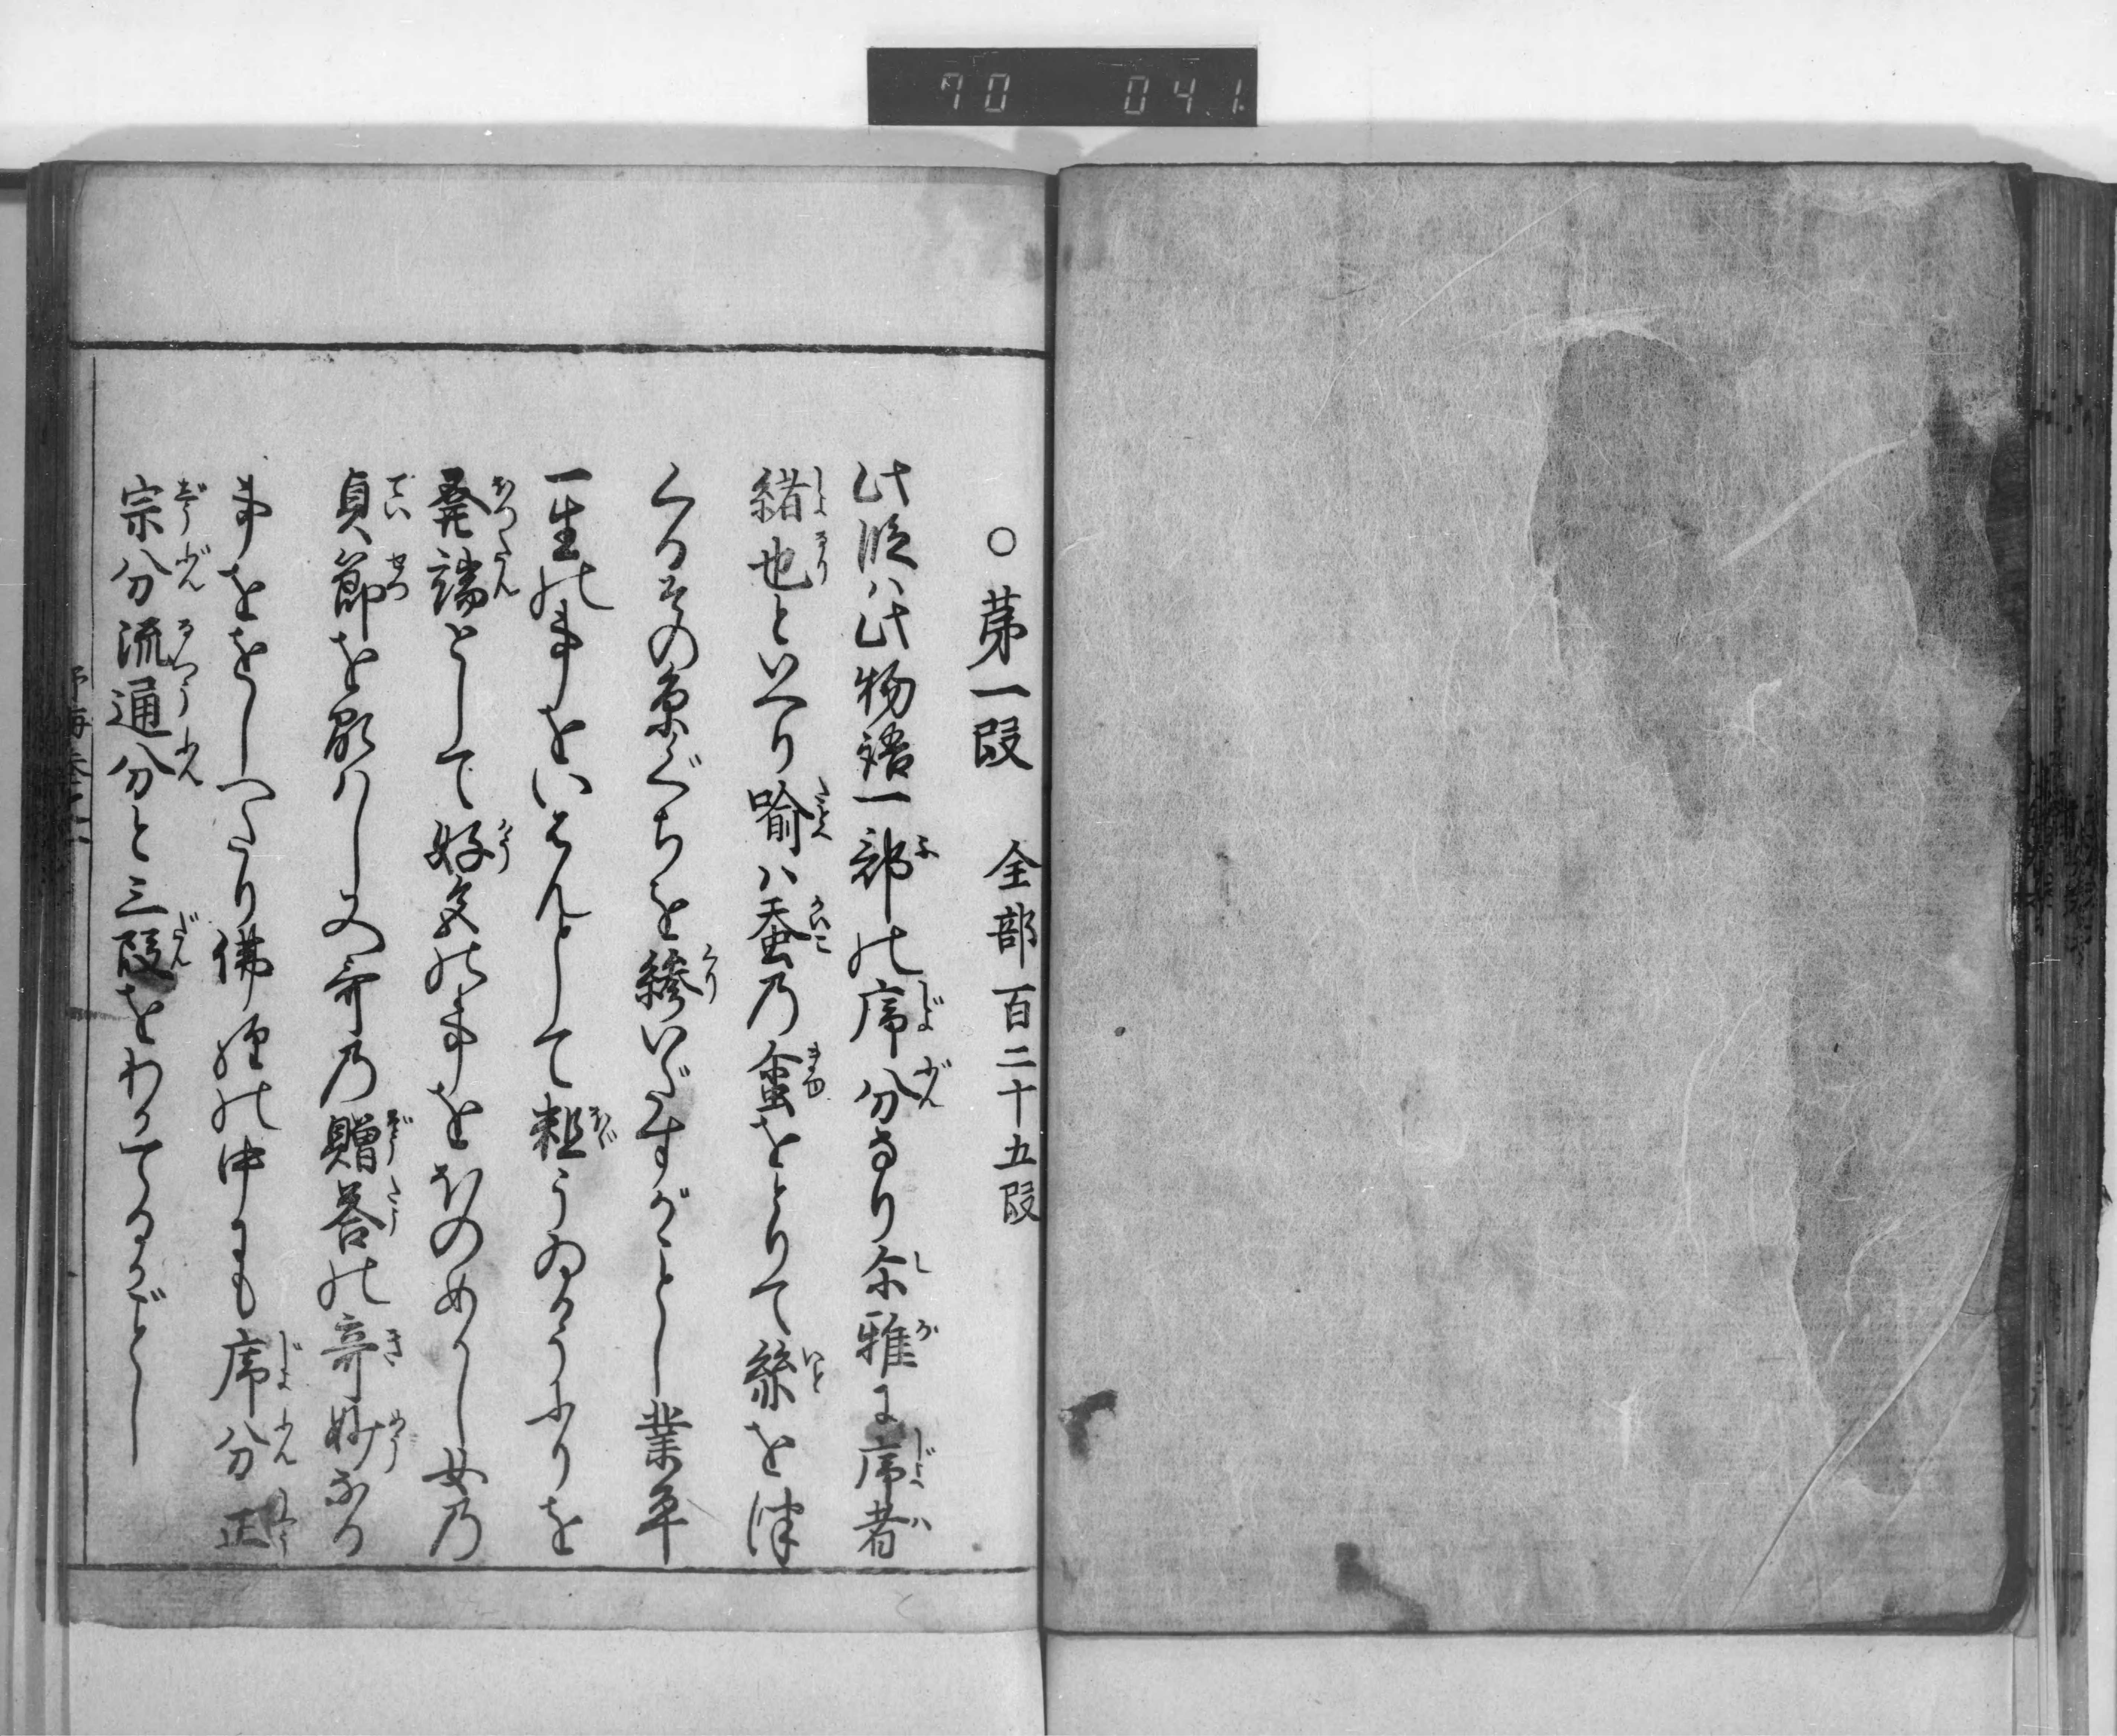 70 041
○第一段 全部百二十五段
此段ハ此物語一部の序分なり尓雅に序者
緒也といへり喩ハ蚕乃蚕をとりて絲を
くるその糸ぐちを繰いだすがごとし業平
一生の事をいはんとして粗うゐかうふりを
発端として好色の事をほのめかし女乃
貞節を顕ハし又哥乃贈答の奇妙なる
事ををしへたり佛経の中にも序分正
宗分流通分と三段をわかてるがごとし